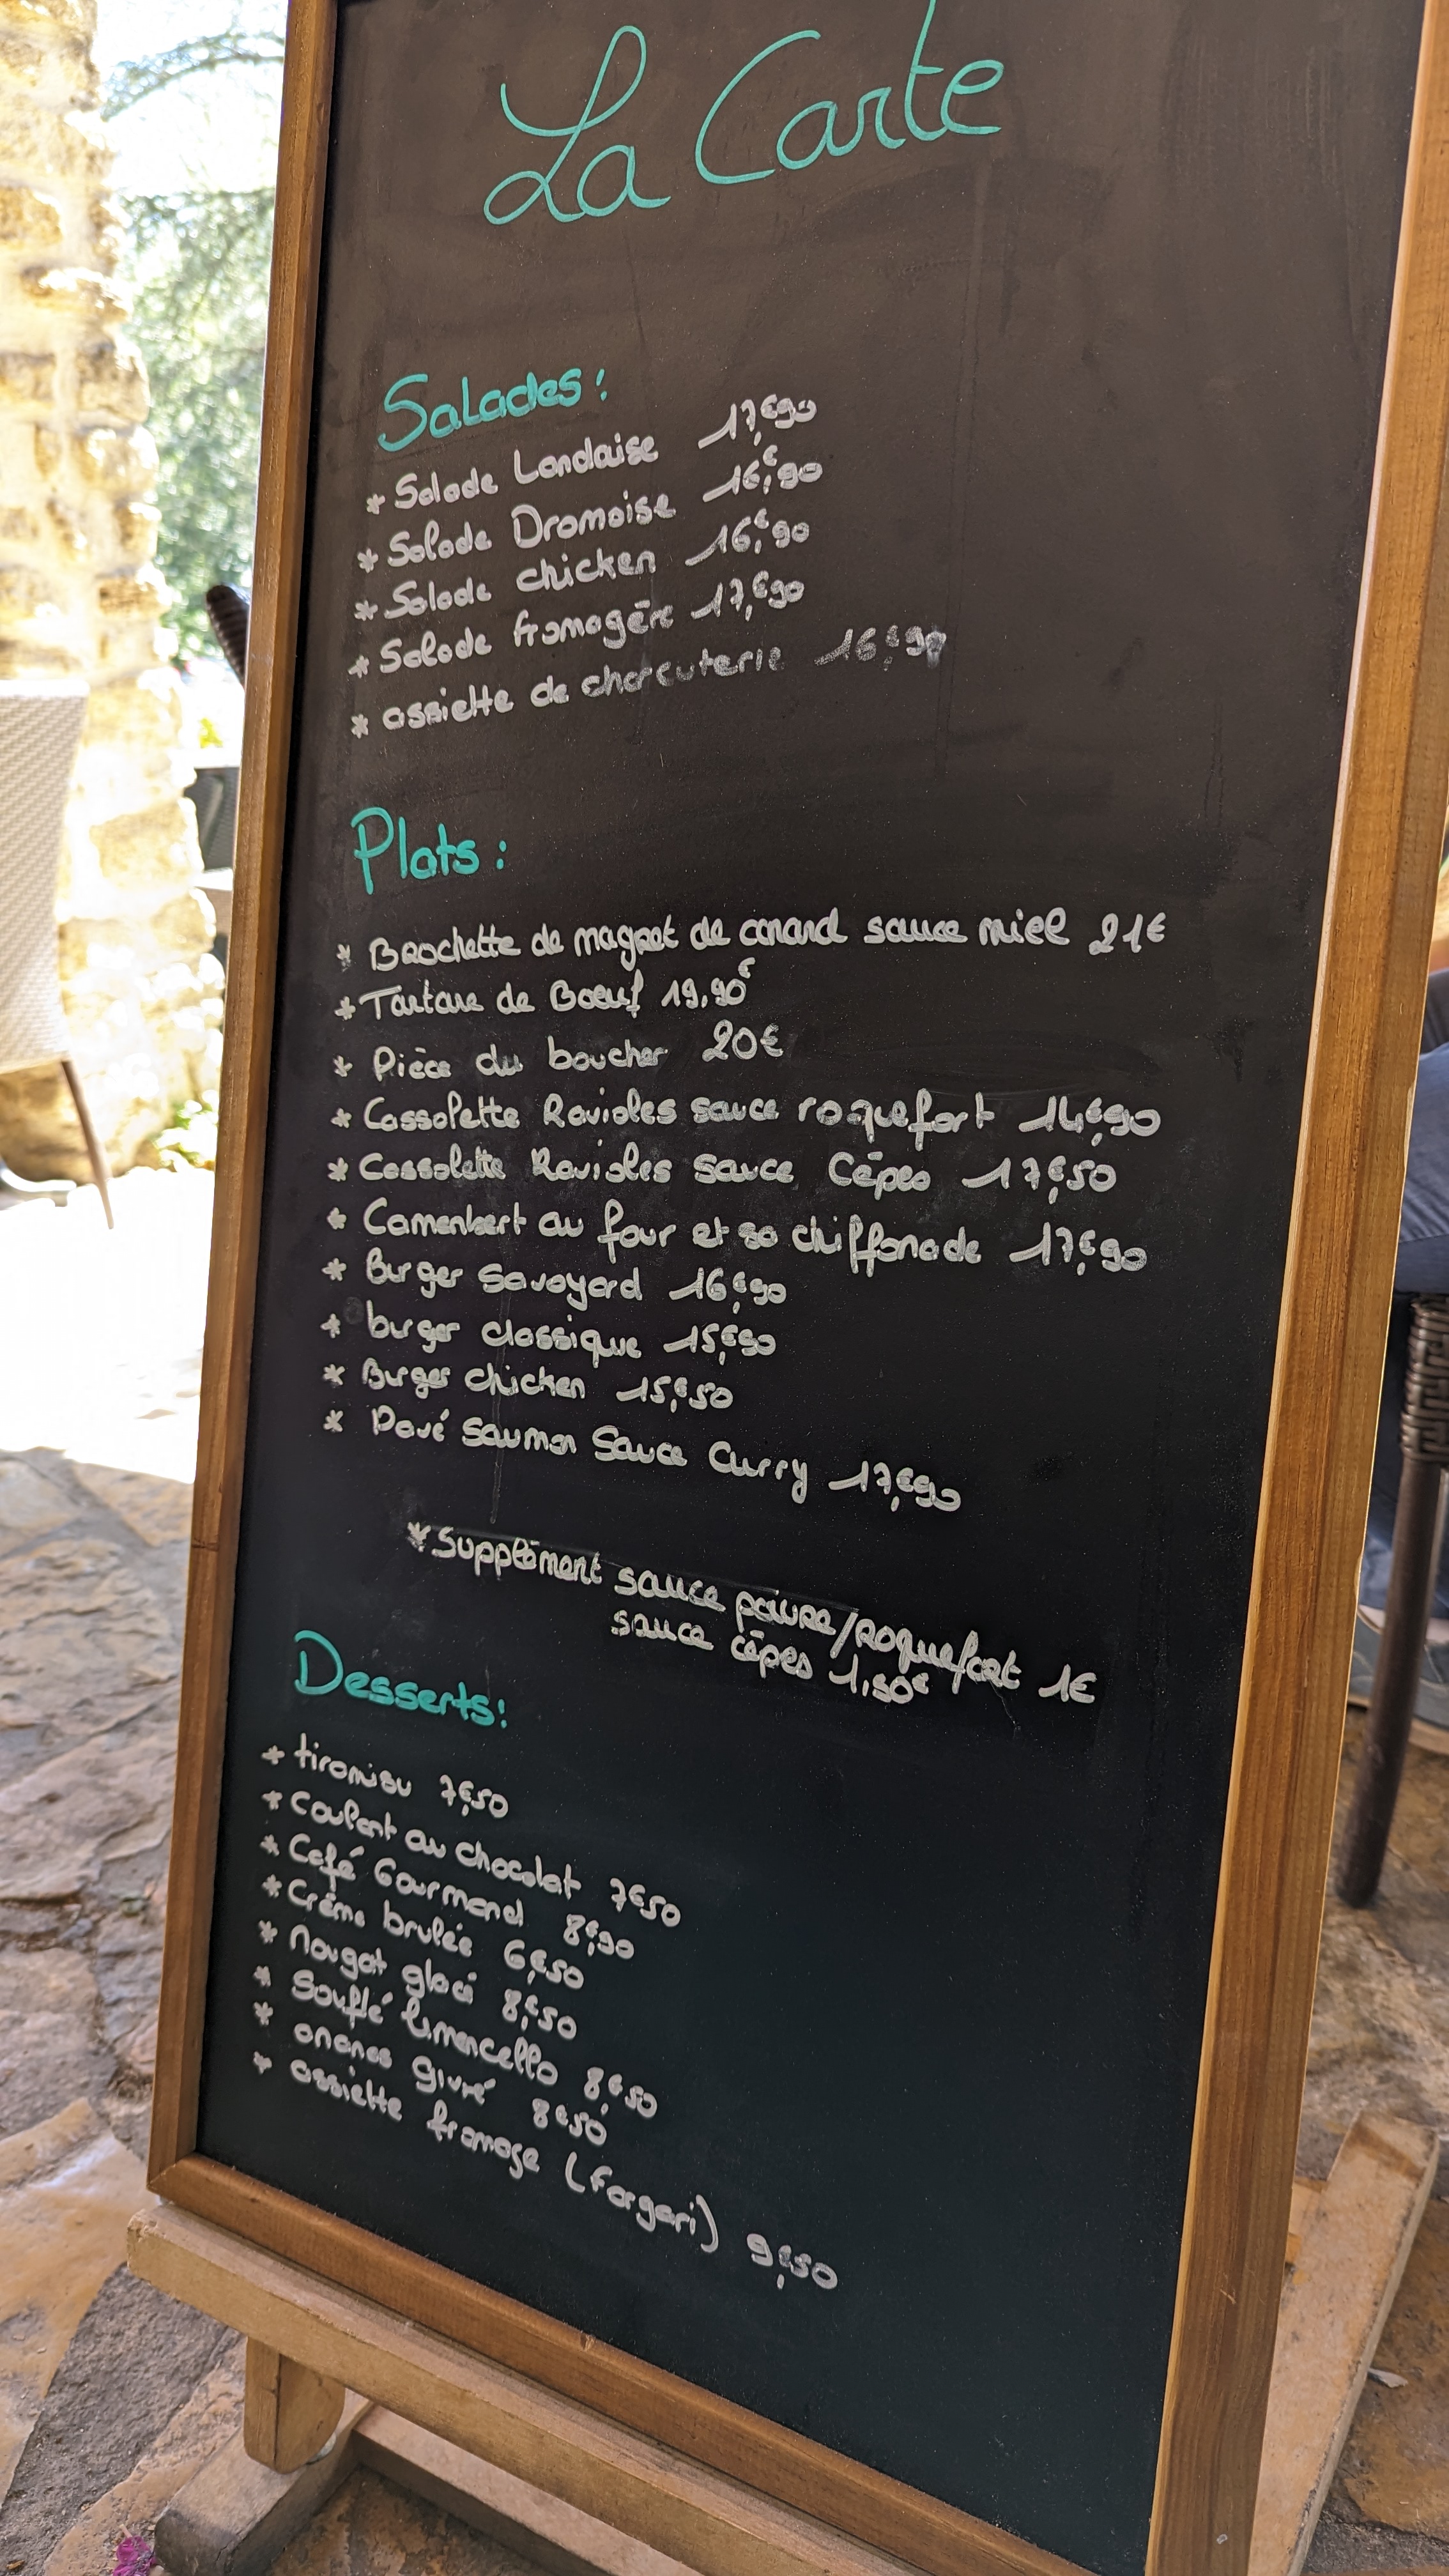 La Carte
Salades:
* Salade Landaise 17,€90
* Salade Dromoise 16,€90
* Salade chicken 16,€90
* Salade fromagère 17,€90
* assiette de charcuterie 16,€90
Plats:
* Brochette de magret de canard sauce miel 21€
* Tartare de Boeuf 19,90€
* Pièce du boucher 20€
* Cassolette Ravioles sauce roquefort 14,€90
* Cassolette Ravioles sauce Cêpes 17,€50
* Camembert au four et sa chiffonade 17,€90
* Burger Savoyard 16,€90
* burger classique 15,€90
* Burger chicken 15,€50
* Pavé saumon Sauce Curry 17,€90
* Supplément sauce poivre/roquefort 1€
sauce cêpes 1,50€
Desserts:
* tiramisu 7,€50
* coulant au chocolat 7,€50
* Café Gourmand 8,€90
* Crème brulée 6,€50
* Nougat glacé 8,€50
* Souflé limencello 8,€50
* ananas givré 8,€50
* assiette fromage (fargari) 9,€50